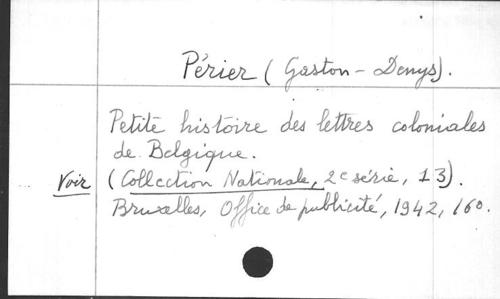 Périer (Gaston-Denys).
Petite histoire des lettres coloniales
de Belgique.
Voir (Collection Nationale, 2e série, 13).
Bruxelles, Office de publicité, 1942, 160.